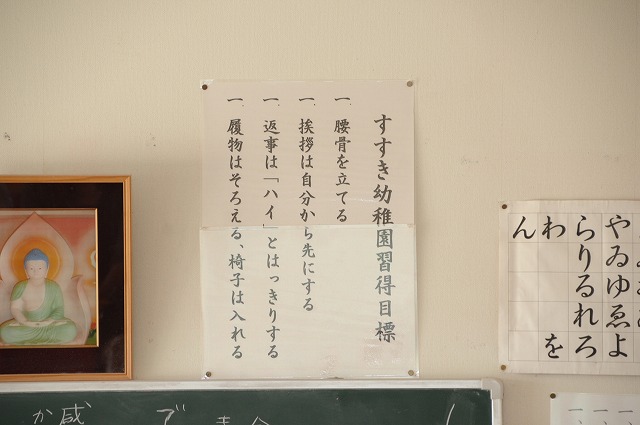 すすき幼稚園習得目標
一、腰骨を立てる
一、挨拶は自分から先にする
一、返事は「ハイ」とはっきりする
一、履物はそろえる、椅子は入れる
やゐゆゑよ
らりるれろ
わ を
ん
か感
で